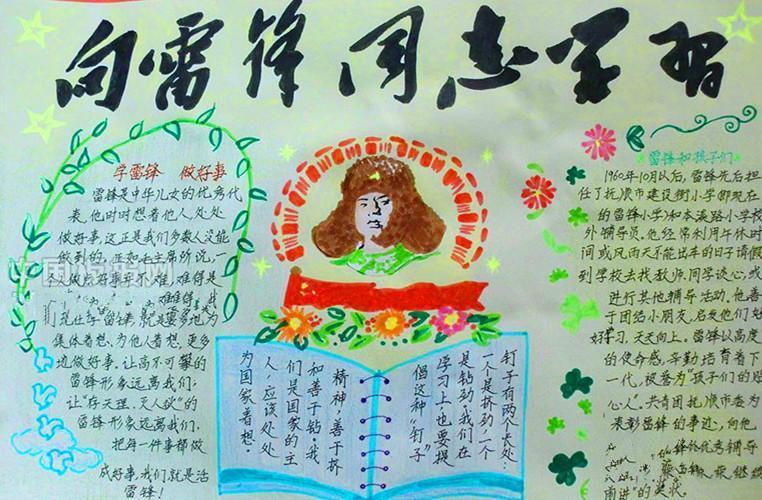 向雷锋同志学习
学雷锋 做好事
雷锋是中华儿女的优秀代
表，他时时想着他人，处处
做好事，这正是我们多数人没能
做到的。正如毛主席所说，一
我们学雷锋，就是要多地为
集体着想，为他人着想，更多
地做好事。让高不可攀的
雷锋形象远离我们；
让“存天理，灭人欲”的
雷锋形象远离我们。
把每一件事都做
成好事，我们就是活
雷锋！
钉子有两个长处：
一个是挤劲，一个
是钻劲，我们在
学习上，也要提
倡这种“钉子”
精神，善于挤
和善于钻。我
们是国家的主
人，应该处处
为国家着想。
雷锋和孩子们
1960年10月以后，雷锋先后担
任了抚顺市建设街小学(即现在
的雷锋小学)和本溪路小学校
外辅导员。他经常利用午休时
间或风雨天不能出车的日子请假
到学校去找教师、同学谈心，或
进行其他辅导活动。他善
于团结小朋友，启发他们
好好学习，天天向上。雷锋以高度
的使命感，辛勤培育着下
一代，被誉为“孩子们的贴
心人”。共青团抚顺市委为
表彰雷锋的事迹，向他
优秀辅导